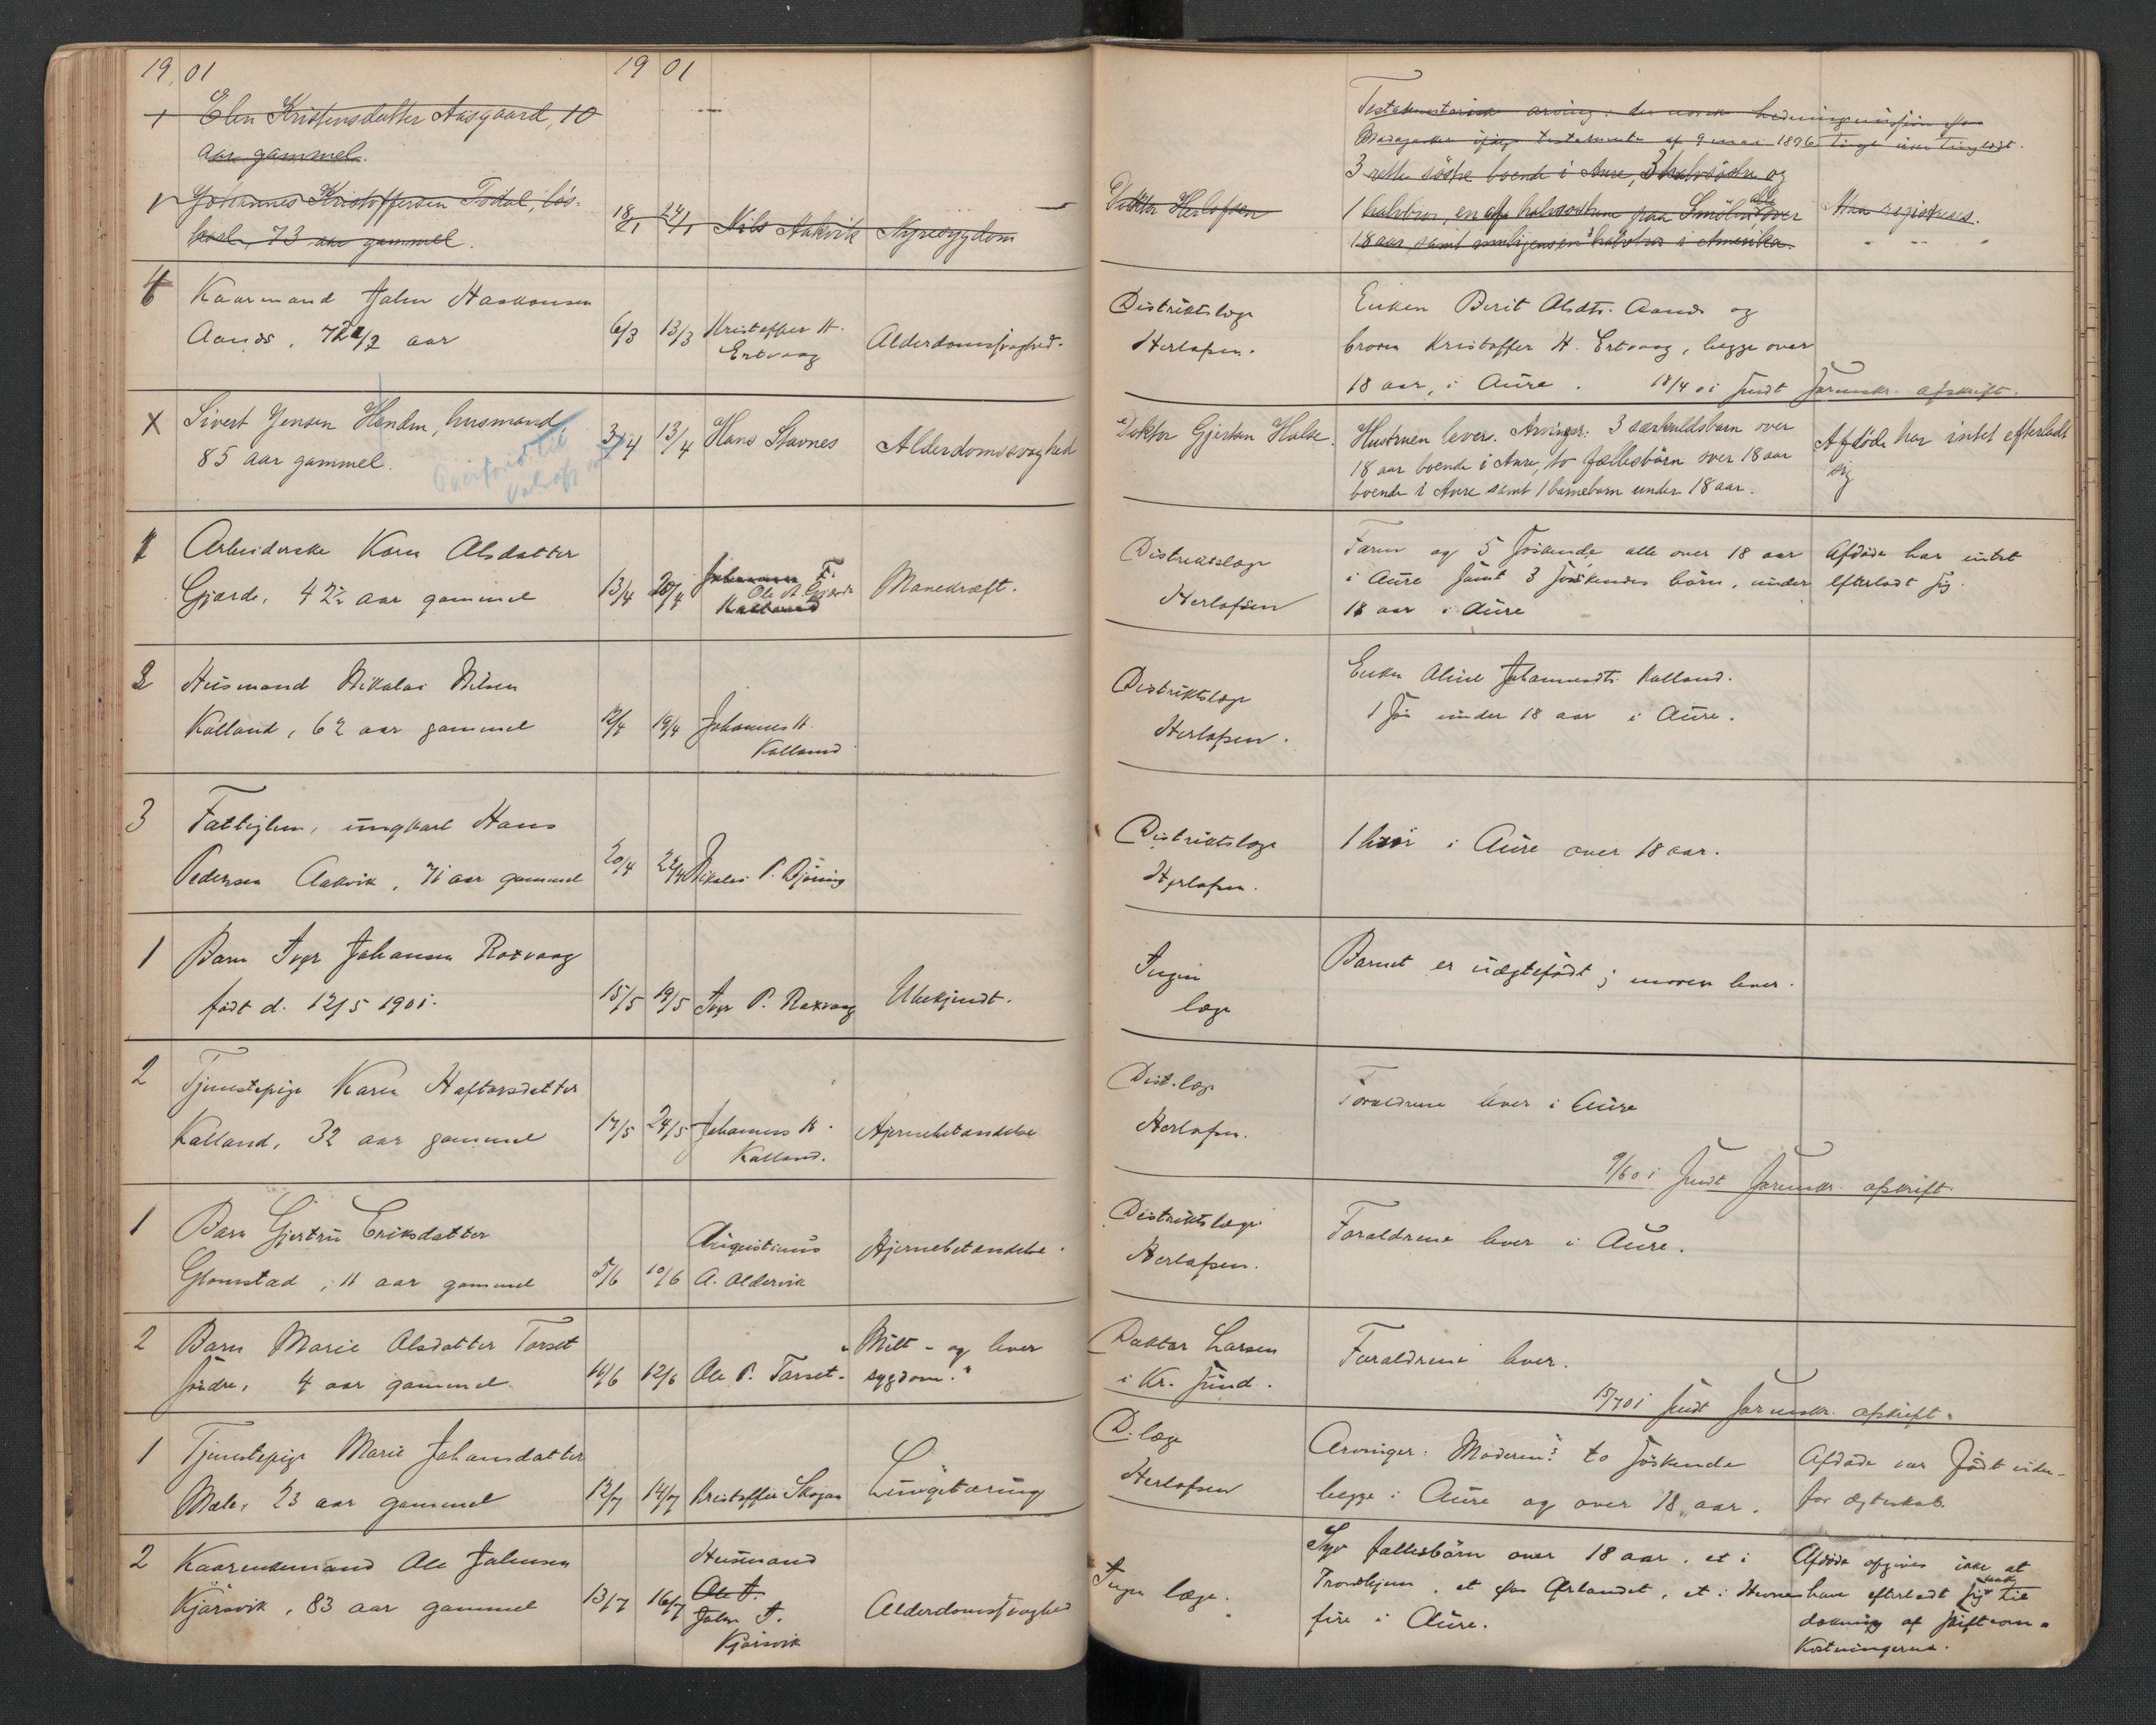 19 01 19 01
1 Elen Kristensdatter Aasgaard, 10
aar gammel.
Testamentarisk arving: den norske hedningemission paa
Madagaskar ifølge testamente af 9 mai 1896
3 rette søstre boende i Aure, 3 halvsøstre og
1 Johannes Kristoffersen Todal, løs-
karl, 73 aar gammel. 18/1 24/1 Nils Aakvik Nyresygdom
Doktor Herlofsen
1 halvbror, en af halvsøstrene paa Smölen, alle over
18 aar, samt halvbror i Amerika.
Maa registreres.
4 Kaarmand John Haakonsen
Aands, 72 1/2 aar 6/3 13/3 Kristoffer H.
Ertvaag Alderdomssvaghed.
Distriktslæge
Herlofsen.
Enken Berit Olsdtr. Aands og
broren Kristoffer H. Ertvaag, begge over
18 aar, i Aure. 18/4 01 sendt Sorenskr. afskrift.
X Sivert Jensen Hendn, husmand,
85 aar gammel. 3/4 13/4 Hans Stavnes Alderdomssvaghed
Overført til
Doktor Gjertsen Halse.
Hustruen lever. Arvinger: 3 særkuldsbarn over
18 aar boende i Aure, to fællesbørn over 18 aar
boende i Aure samt 1 barnebarn under 18 aar.
Afdøde har intet efterladt
sig
1 Arbeiderske Karen Olsdatter
Gjærde, 42 1/2 aar gammel 13/4 20/4 Johannes F.
Kalland
Ole A. Gjærde Marvedræft.
Distriktslæge
Herlofsen
Faren og 5 søskende alle over 18 aar
i Aure samt 3 søskendes børn, under
18 aar i Aure
Afdøde har intet
efterladt sig.
2 Husmand Nikolai Nilsen
Kalland, 62 aar gammel 12/4 19/4 Johannes H.
Kalland
Distriktslæge
Herlofsen.
Enken Aline Johannesdtr. Kalland.
1 søn under 18 aar i Aure.
3 Fattiglem, ungkarl Hans
Pedersen Aakvik, 71 aar gammel 20/4 22/4 Nikolai P. Bjøring
Distriktslæge
Herlofsen.
1 bror i Aure over 18 aar.
1 Barn Ingr Johansen Roxvaag
født d. 12/5 1901. 15/5 19/5 Ingr P. Roxvaag Ubekjendt.
Ingen
læge
Barnet er uægtefødt; moren lever.
2 Tjenestepige Karen Haftorsdatter
Kalland, 32 aar gammel 17/5 24/5 Johannes H.
Kalland. Hjernebetændelse
Dist.læge
Herlofsen.
Forældrene lever i Aure
9/6 01 sendt Sorenskr. afskrift
1 Barn Gjertru Eriksdatter
Glomstad, 11 aar gammel 5/6 10/6 Augustinus
A. Aldervik Hjernebetændelse.
Distriktslæge
Herlofsen.
Forældrene lever i Aure.
2 Barn Marie Olsdatter Torset
søndre, 4 aar gammel. 10/6 12/6 Ole P. Torset. "Milt- og lever
sygdom."
Doktor Larsen
i Kr. sund.
Forældrene lever.
15/7 01 sendt Sorenskr. afskrift.
1 Tjenestepige Marie Johansdatter
Mele, 23 aar gammel 12/7 14/7 Kristoffer Skogan Lungetæring
D. læge
Herlofsen
Arvinger: Moderen & to søskende
begge i Aure og over 18 aar.
Afdøde var født uden-
for ægteskab.
2 Kaarenkemand Ole Johnsen
Kjørsvik, 83 aar gammel 13/7 16/7 Husmand
Ole J.
John J.
Kjørsvik Alderdomssvaghed
Ingen læge.
Syv fællesbørn over 18 aar, et i
Trondhjem, et paa Ørlandet, et i Hevne
fire i Aure.
Afdøde opgives ikke at
have efterladt sig nok til
dækning af skifteom-
kostningerne.